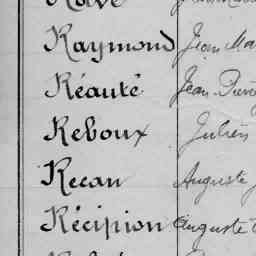 Raymond Jean Ma
Réauté Jean Pierre
Reboux Julien
Recan Auguste
Récipion Auguste